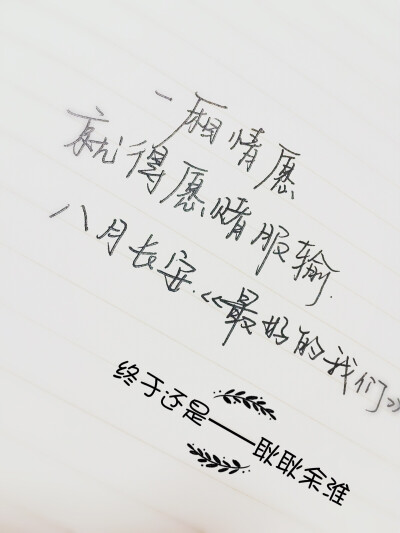 一厢情愿
就得愿赌服输.
八月长安.《最好的我们》
终于还是——耿耿余淮